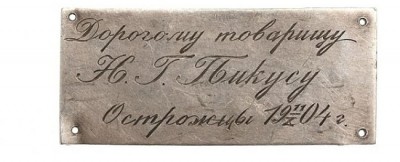 Дорогому товарищу
Н. Г. Пикусу
Острожцы 19 11/X 04 г.